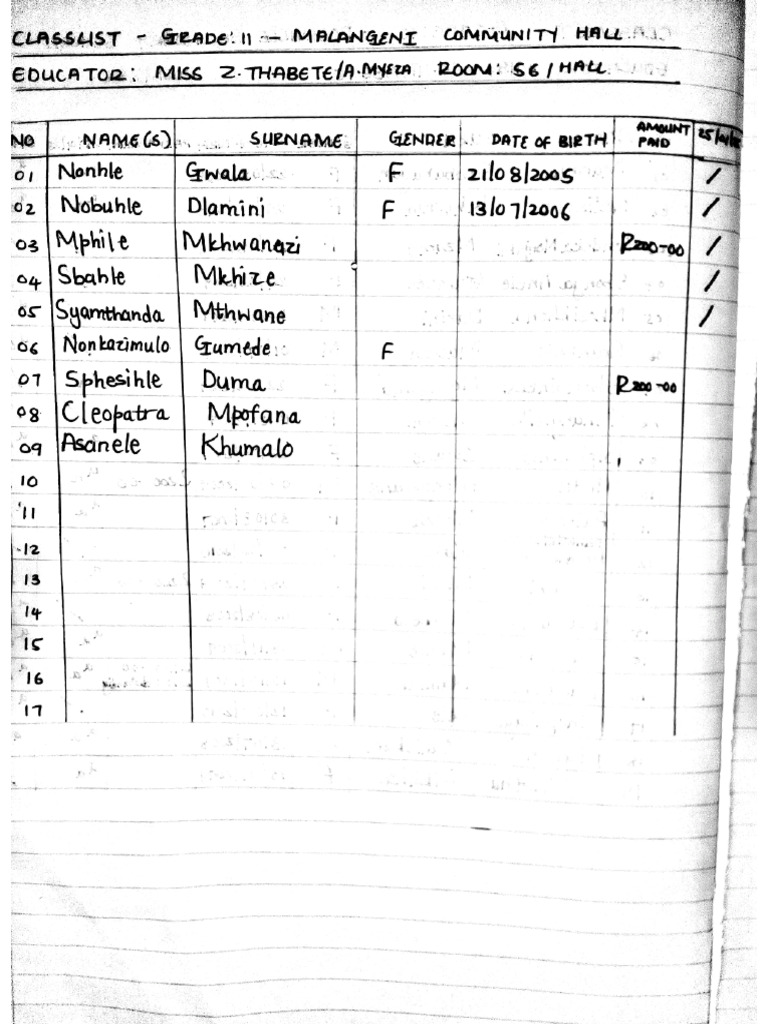 CLASSLIST - GRADE: 11 - MALANGENI COMMUNITY HALL
EDUCATOR: MISS Z. THABETE/A. MYEZA ROOM: 56/HALL
NO NAME(S) SURNAME GENDER DATE OF BIRTH AMOUNT PAID
01 Nonhle Gwala F 21/08/2005 /
02 Nobuhle Dlamini F 13/07/2006 /
03 Mphile Mkhwanazi R200-00 /
04 Sbahle Mkhize /
05 Syamthanda Mthwane /
06 Nonkazimulo Gumede F
07 Sphesihle Duma R200-00
08 Cleopatra Mpofana
09 Asanele Khumalo
10
11
12
13
14
15
16
17